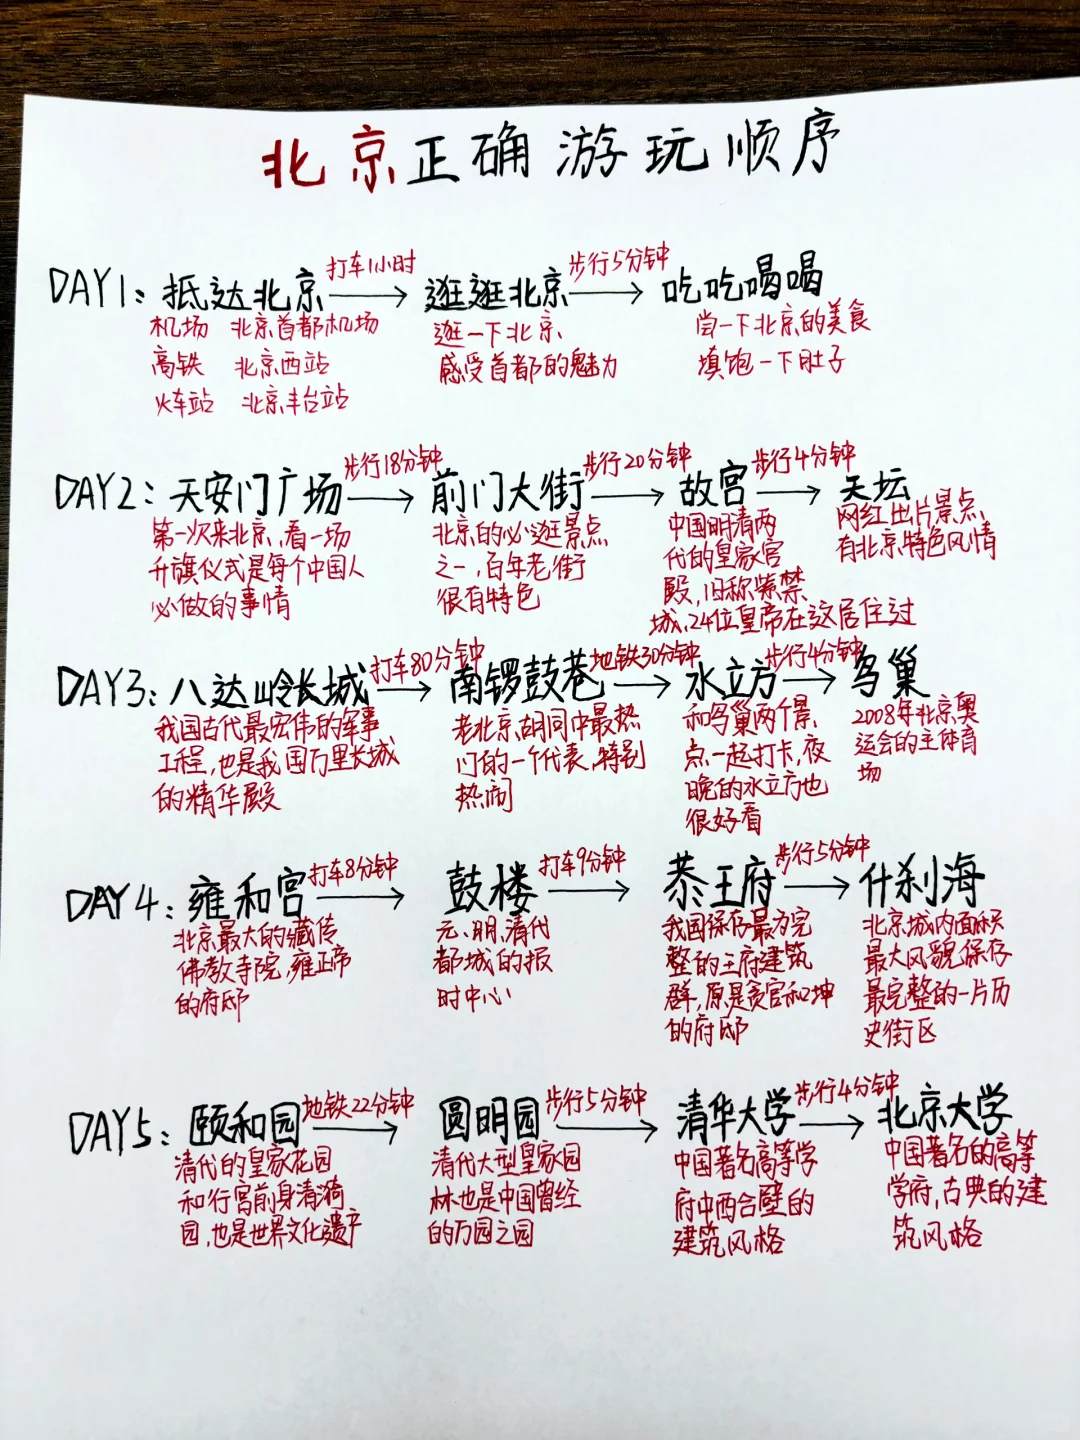 北京正确游玩顺序
打车1小时 步行5分钟
DAY1：抵达北京→逛逛北京→吃吃喝喝
机场 北京首都机场
高铁 北京西站
火车站 北京丰台站
逛一下北京
感受首都的魅力
尝一下北京的美食
填饱一下肚子
步行18分钟 步行20分钟 步行4分钟
DAY2：天安门广场→前门大街→故宫→天坛
第一次来北京，看一场
升旗仪式是每个中国人
必做的事情
北京的必逛景点
之一，百年老街
很有特色
中国明清两
代的皇家宫
殿，旧称紫禁
城，24位皇帝在这居住过
网红出片景点
有北京特色风情
打车80分钟 地铁30分钟 步行4分钟
DAY3：八达岭长城→南锣鼓巷→水立方→鸟巢
我国古代最宏伟的军事
工程，也是我国万里长城
的精华殿
老北京胡同中最热
门的一个代表，特别
热闹
和鸟巢两个景
点一起打卡，夜
晚的水立方也
很好看
2008年北京奥
运会的主体育
场
打车8分钟 打车9分钟 步行5分钟
DAY4：雍和宫→鼓楼→恭王府→什刹海
北京最大的藏传
佛教寺院，雍正帝
的府邸
元、明、清代
都城的报
时中心
我国保存最为完
整的王府建筑
群，原是贪官和坤
的府邸
北京城内面积
最大风貌保存
最完整的一片历
史街区
地铁22分钟 步行5分钟 步行4分钟
DAY5：颐和园→圆明园→清华大学→北京大学
清代的皇家花园
和行宫前身清漪
园，也是世界文化遗产
清代大型皇家园
林也是中国曾经
的万园之园
中国著名高等学
府中西合璧的
建筑风格
中国著名的高等
学府，古典的建
筑风格